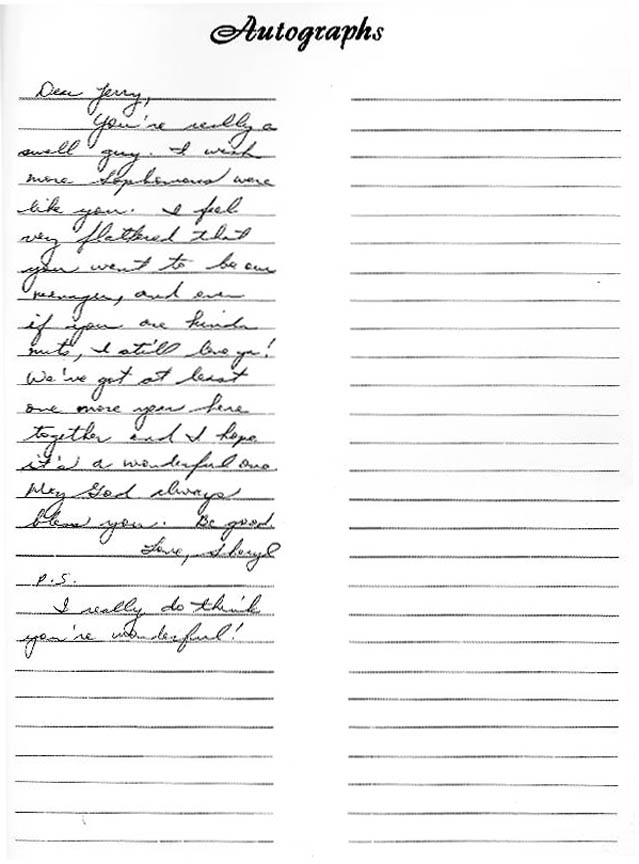 Autographs
Dear Jerry,
You're really a
swell guy. I wish
more sophomores were
like you. I feel
very flattered that
you want to be our
manager, and even
if you are kinda
nuts, I still love ya!
We've got at least
one more year here
together and I hope
it's a wonderful one.
May God always
bless you. Be good.
Love, Sheryl
P.S.
I really do think
you're wonderful!